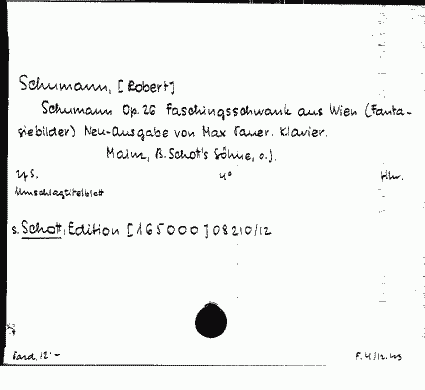 Schumann, [Robert]
Schumann Op. 26 Faschingsschwank aus Wien (Fanta-
siebilder) Neu-Ausgabe von Max Pauer. Klavier.
Mainz, B. Schott's Söhne, o. J.
27 S. 4° Hlw.
Umschlagtitelblatt
s. Schott, Edition [165000] 08210/12
F. 4/12.43